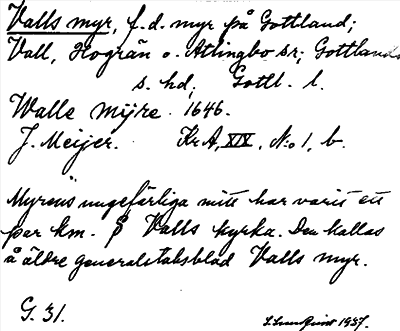 Valls myr, f. d. myr på Gottland;
Vall, Hogrän o. Atlingbo snr; Gottlands
s. hd; Gottl. l.
Walle mijre. 1646.
J. Meijer. Kr A, XIX, No 1, b.
Myrens ungefärliga mitt har varit ett
par km. Ö Valls kyrka. Den kallas
å äldre generalstabsblad Valls myr.
G. 31.
S. Lundquist 1937.